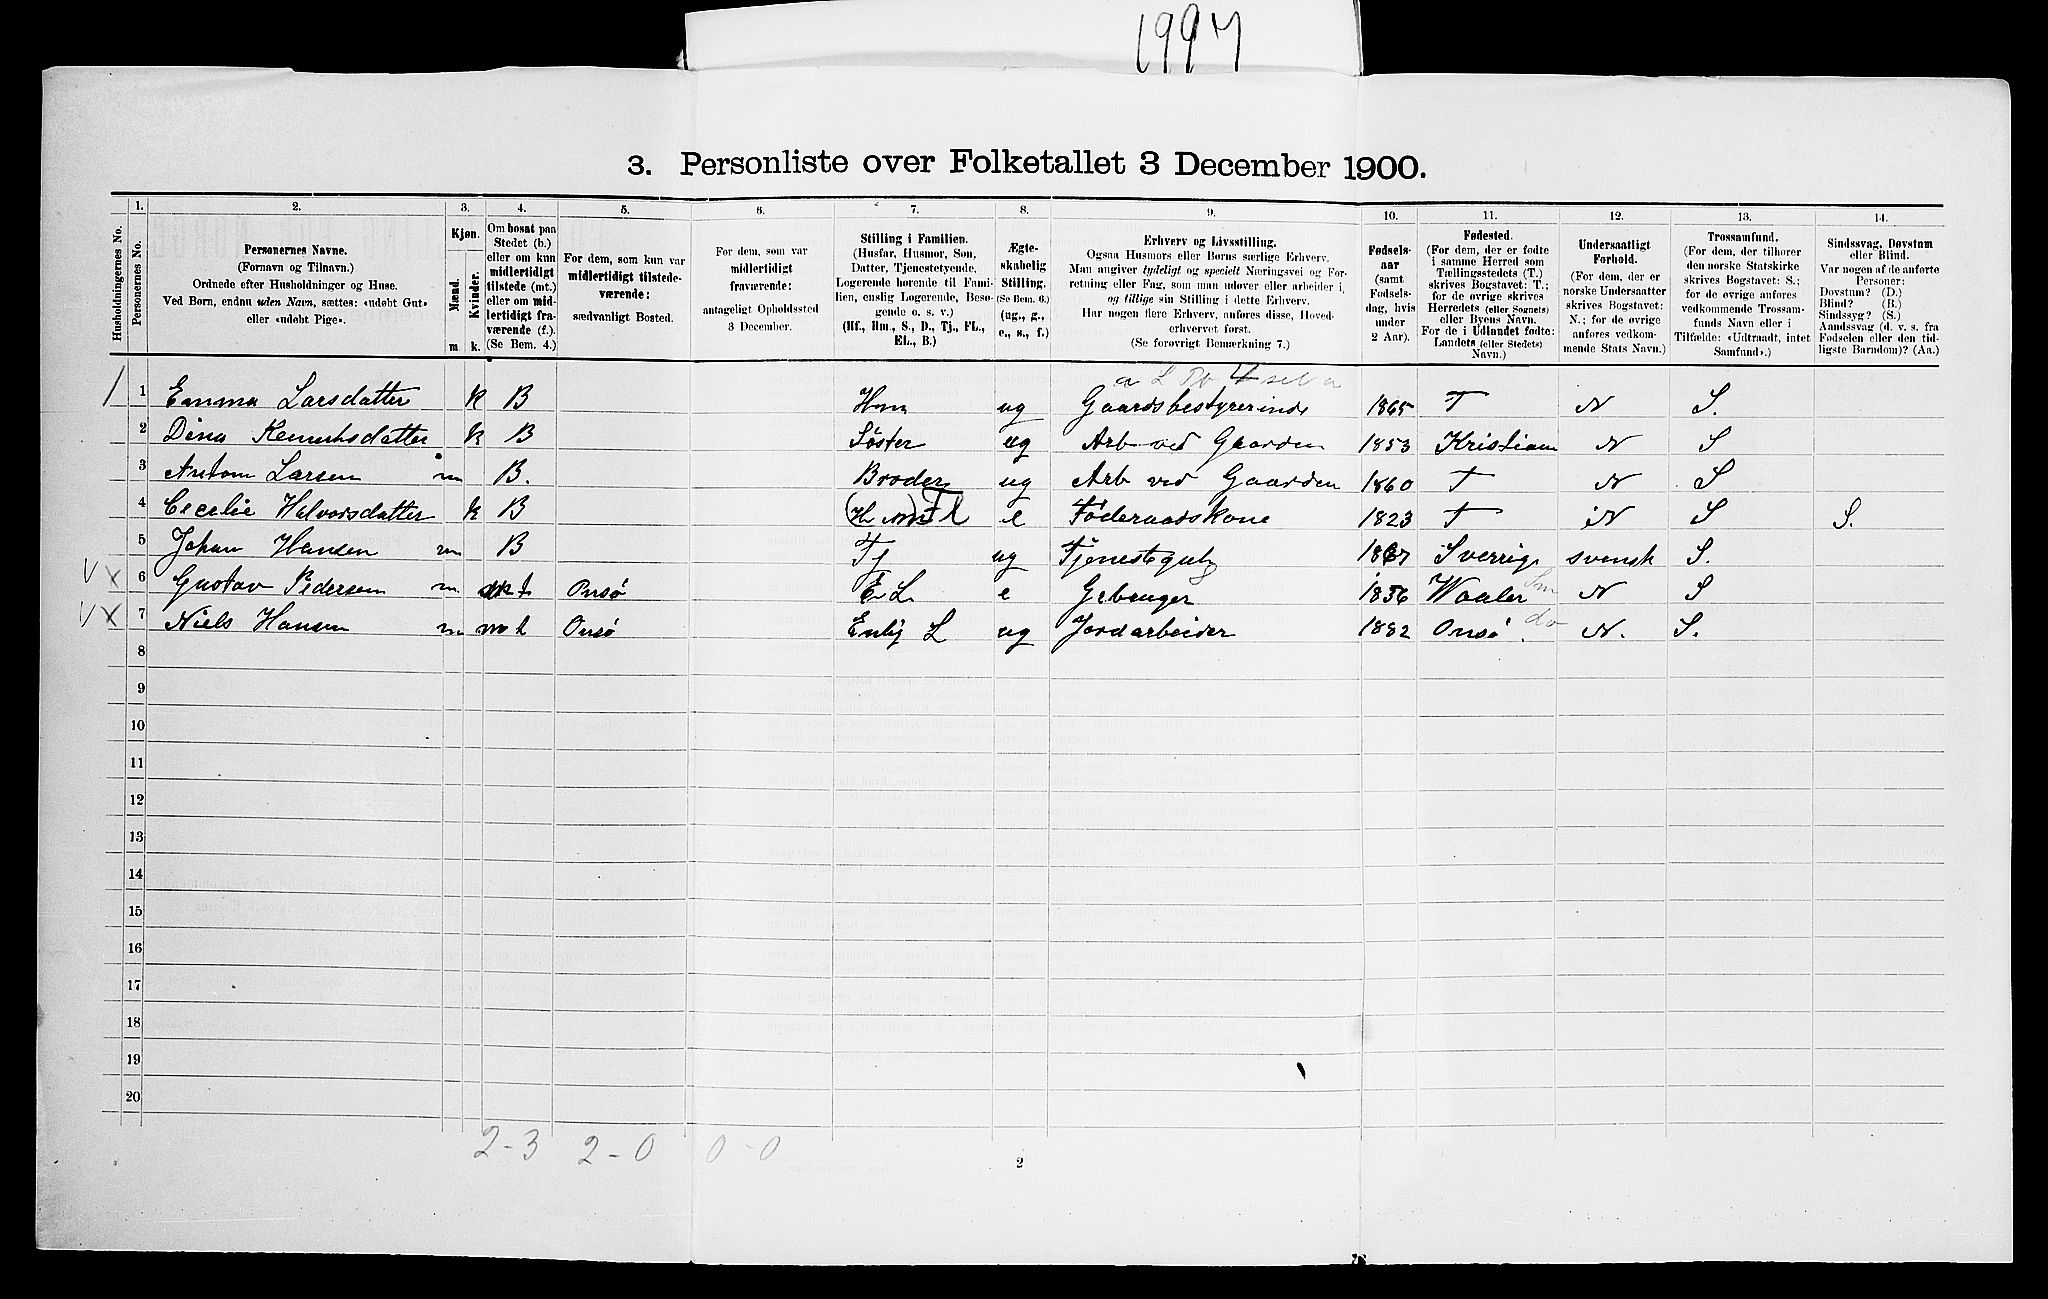 1997
3. Personliste over Folketallet 3 December 1900.
Husholdningernes No.
1.
Personernes No.
2.
Personernes Navne.
(Fornavn og Tilnavn.)
Ordnede efter Husholdninger og Huse.
Ved Børn, endnu uden Navn, sættes: «udøbt Gut»
eller «udøbt Pige».
3.
Kjøn.
Mænd.
Kvinder.
m
k.
4.
Om bosat paa
Stedet (b.)
eller om kun
midlertidigt
tilstede (mt.)
eller om mid-
lertidigt fra-
værende (f.).
(Se Bem. 4.)
5.
For dem, som kun var
midlertidigt tilstede-
værende:
sædvanligt Bosted.
6.
For dem, som var
midlertidigt
fraværende:
antageligt Opholdssted
3 December.
7.
Stilling i Familien.
(Husfar, Husmor, Søn,
Datter, Tjenestetyende,
Logerende hørende til Fami-
lien, enslig Logerende, Besø-
gende o. s. v.)
(Hf., Hm., S., D., Tj., FL.,
EL., B.)
8.
Ægte-
skabelig
Stilling.
(Se Bem. 6.)
(ug., g.,
e., s., f.)
9.
Erhverv og Livsstilling.
Ogsaa Husmors eller Børns særlige Erhverv.
Man angiver tydeligt og specielt Næringsvei og For-
retning eller Fag, som man udøver eller arbeider i,
og tillige sin Stilling i dette Erhverv.
Har nogen flere Erhverv, anføres disse, Hoved-
erhvervet først.
(Se forøvrigt Bemerkning 7.)
10.
Fødsels-
aar
(samt
Fødsels-
dag, hvis
under
2 Aar).
11.
Fødested.
(For dem, der er fødte
i samme Herred som
Tællingsstedets (T.)
skrives Bogstavet: T.;
for de øvrige skrives
Herredets (eller Sognets)
eller Byens Navn.
For de i Udlandet fødte:
Landets (eller Stedets)
Navn.)
12.
Undersaatligt
Forhold.
(For dem, der er
norske Undersaatter
skrives Bogstavet:
N.; for de øvrige
anføres vedkom-
mende Stats Navn.)
13.
Trossamfund.
(For dem, der tilhører
den norske Statskirke
skrives Bogstavet: S.;
for de øvrige anføres
vedkommende Trossam-
funds Navn eller i
Tilfælde: «Udtraadt, intet
Samfund».)
14.
Sindssvag, Døvstum
eller Blind.
Var nogen af de anførte
Personer:
Døvstum? (D.)
Blind? (B.)
Sindssyg? (S.)
Aandssvag (d. v. s. fra
Fødselen eller den tid-
ligste Barndom)? (Aa.)
1 1 Emma Larsdatter k B Hm ug Gaardsbestyrerinde 1865 T N S.
2 Dina Larsdatter k B Søster ug Arb ved Gaarden 1853 Kristiam N S
3 Anton Larsen m B. Broder ug Arb ved Gaarden 1860 T N S
4 Cecelie Halvorsdatter k B (Hm) Fl e Føderaadskone 1823 T N S S.
5 Johan Hansen m B Tj ug Tjenestegut 1867 Sverrig svensk S.
V X 6 Gustav Pedersen m. mt Onsø E L e Gebruger 1856 Waaler Sm N S
V X 7 Niels Hansen m mt Onsø Enlig L ug Jordarbeider 1882 Onsø. do N. S.
8
9
10
11
12
13
14
15
16
17
18
19
20
2-3 2-0 0-0
2